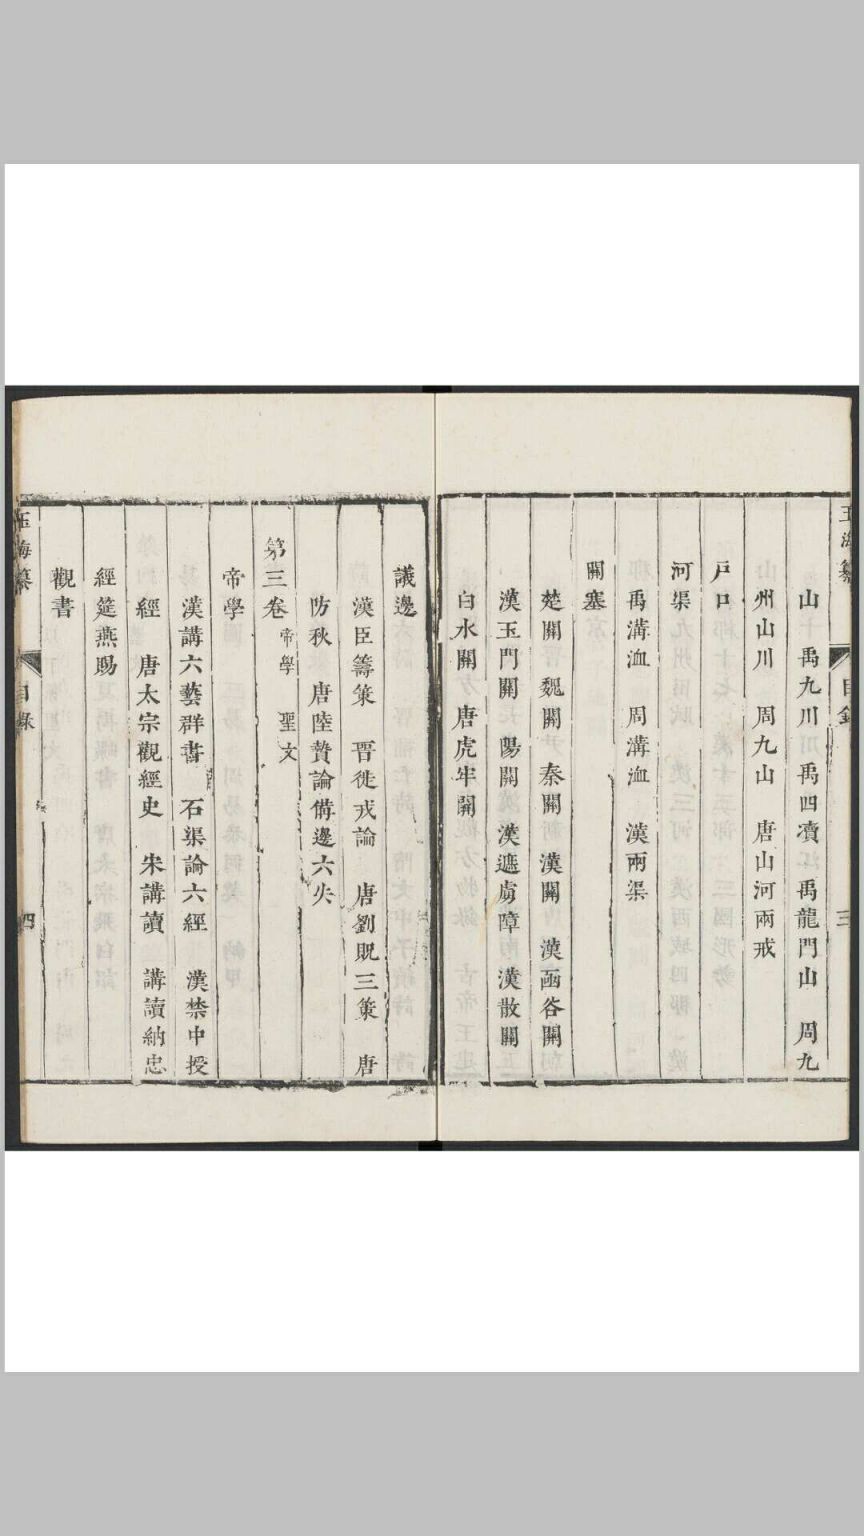 玉海纂 目錄 三
山 禹九川 禹四凟 禹龍門山 周九
州山川 周九山 唐山河兩戒
戸口
河渠
禹溝洫 周溝洫 漢兩渠
關塞
楚關 魏關 秦關 漢關 漢函谷關
漢玉門關 陽關 漢遮虜障 漢散關
白水關 唐虎牢關
議邊
漢臣籌策 晋徙戎論 唐劉貺三策 唐
防秋 唐陸贄論備邊六失
第三卷 帝學 聖文
帝學
漢講六藝群書 石渠論六經 漢禁中授
經 唐太宗觀經史 宋講讀 講讀納忠
經筵燕賜
觀書
玉海纂 目錄 四